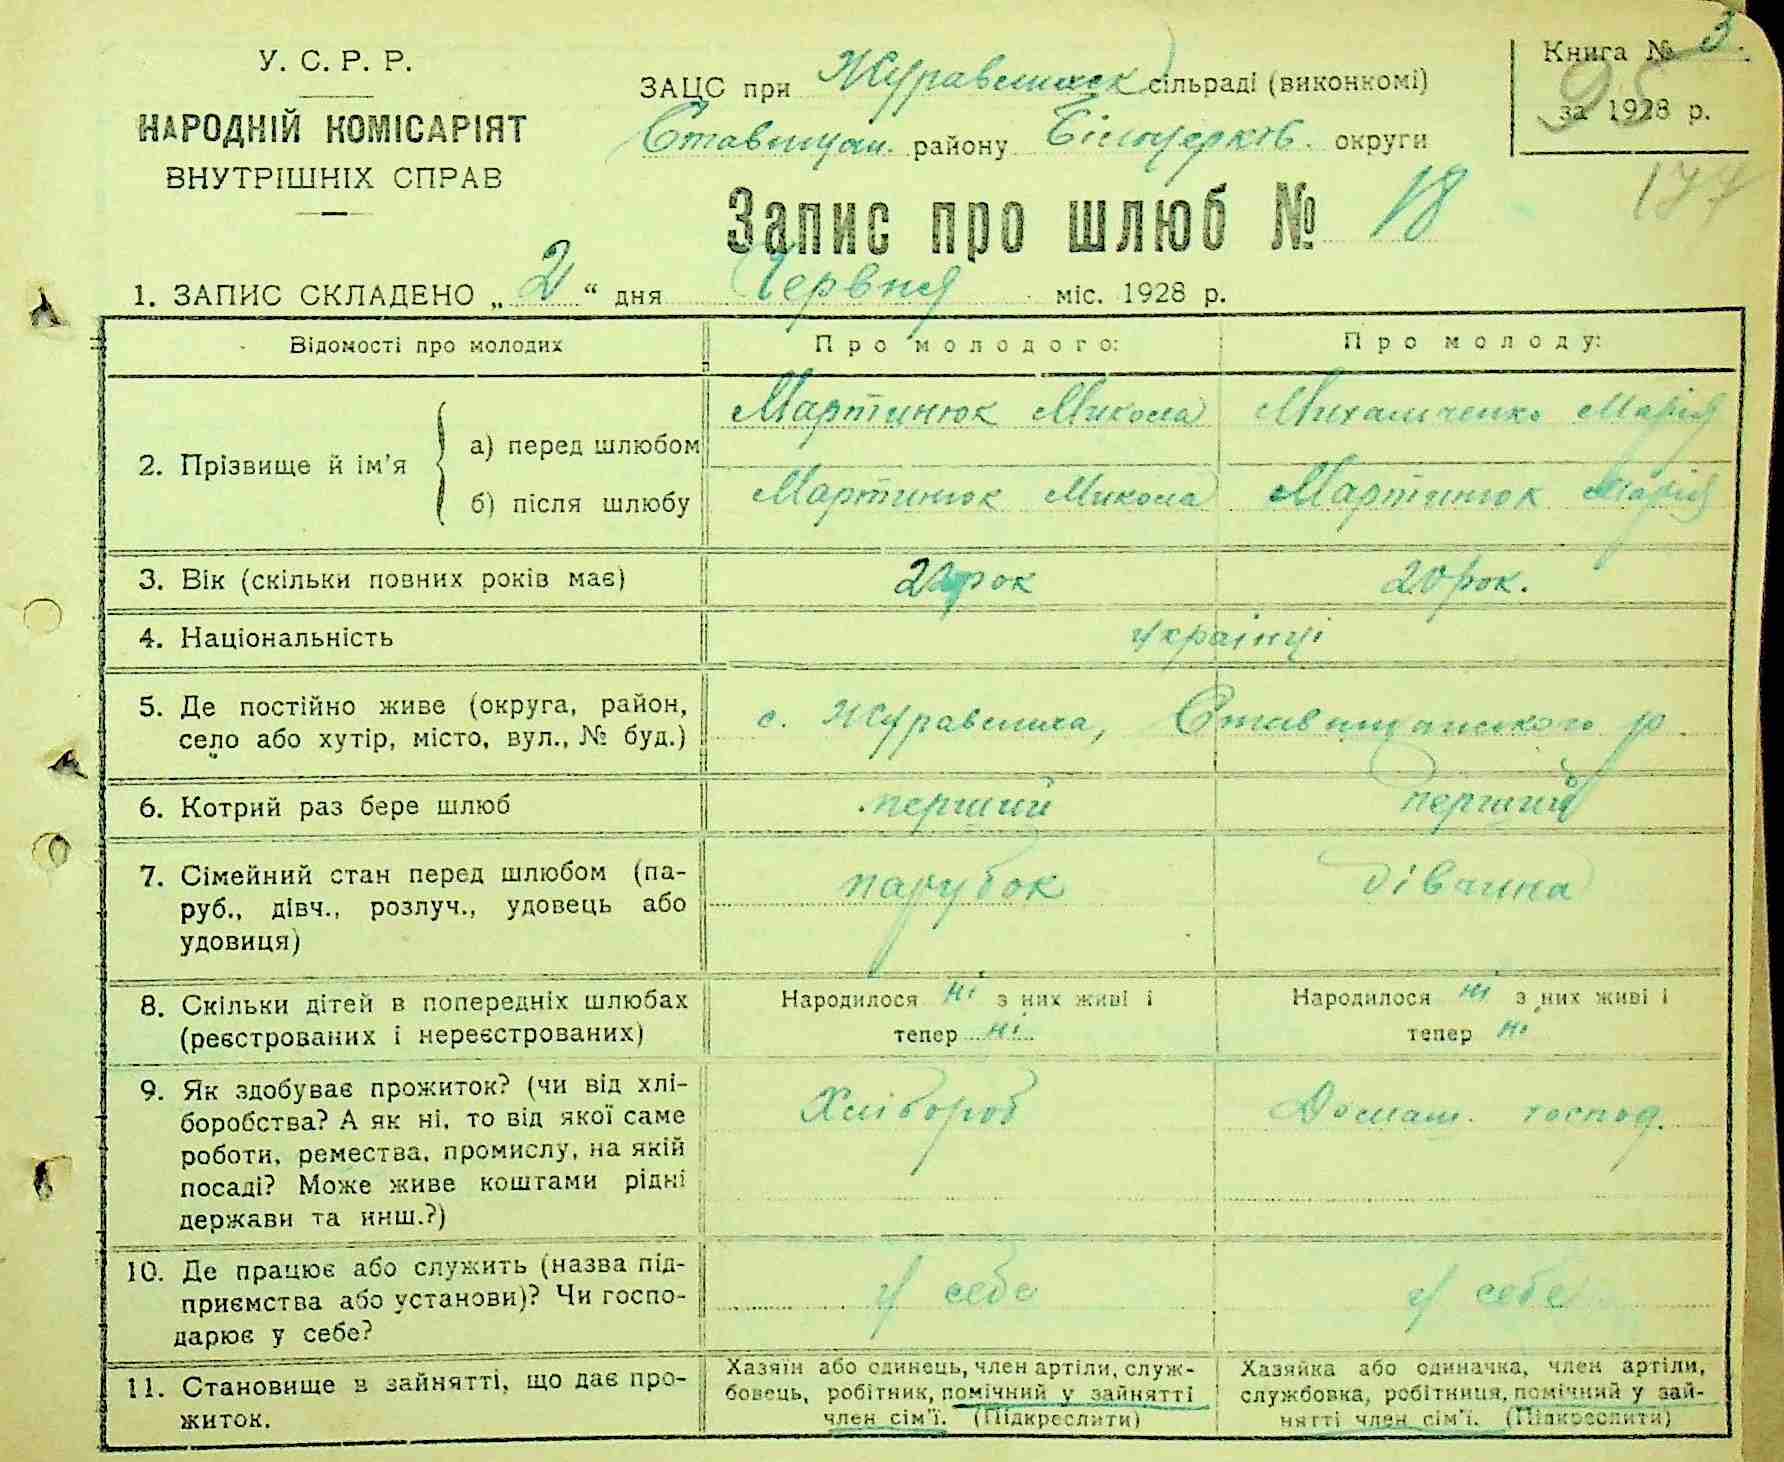 У. С. Р. Р.
НАРОДНІЙ КОМІСАРІЯТ
ВНУТРІШНІХ СПРАВ
ЗАЦС при Журавлиск сільраді (виконкомі)
Ставищан. району Білоцерків. округи
Книга № 3.
95
за 1928 р.
177
Запис про шлюб № 18
1. ЗАПИС СКЛАДЕНО „2“ дня Червня міс. 1928 р.
Відомості про молодих
Про молодого:
Про молоду:
2. Прізвище й ім’я
а) перед шлюбом
Мартинюк Микола
Михальченко Марія
б) після шлюбу
Мартинюк Микола
Мартинюк Марія
3. Вік (скільки повних років має)
рок
20 рок.
4. Національність
українці
5. Де постійно живе (округа, район,
село або хутір, місто, вул., № буд.)
с. Журавлиха, Ставищанського р.
6. Котрий раз бере шлюб
перший
перший
7. Сімейний стан перед шлюбом (па-
руб., дівч., розлуч., удовець або
удовиця)
парубок
дівчина
8. Скільки дітей в попередніх шлюбах
(реєстрованих і нереєстрованих)
Народилося ні з них живі і
тепер ні
Народилося ні з них живі і
тепер ні
9. Як здобуває прожиток? (чи від хлі-
боробства? А як ні, то від якої саме
роботи, ремества, промислу, на якій
посаді? Може живе коштами рідні
держави та инш.?)
Хлібороб
Домаш. господ.
10. Де працює або служить (назва під-
приємства або установи)? Чи госпо-
дарює у себе?
у себе
у себе
11. Становище в зайнятті, що дає про-
житок.
Хазяїн або одинець, член артіли, служ-
бовець, робітник, помічний у зайнятті
член сім’ї. (Підкреслити)
Хазяйка або одиначка, член артіли,
службовка, робітниця, помічний у зай-
нятті член сім’ї. (Підкреслити)